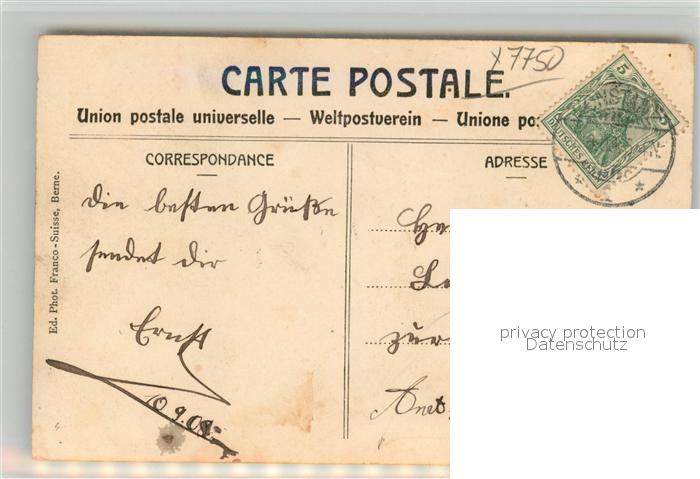 x7750
CARTE POSTALE.
Union postale universelle — Weltpostverein — Unione po
5
DEUTSCHES REICH
CORRESPONDANCE
ADRESSE
Ed. Phot. Franco-Suisse, Berne.
die besten Grüße
sendet dir
Ernst
He
La
zur
Amt
privacy protection
Datenschutz